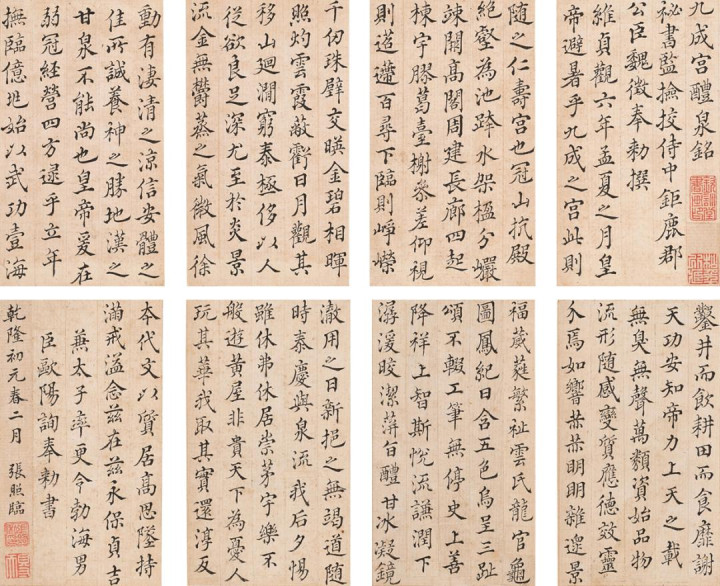 九成宮醴泉銘
祕書監撿挍侍中鉅鹿郡
公臣魏徵奉勅撰
維貞觀六年孟夏之月皇
帝避暑乎九成之宮此則
隨之仁壽宮也冠山抗殿
絕壑為池跨水架楹分巖
竦闕高閣周建長廊四起
棟宇膠葛臺榭參差仰視
則迢遰百尋下臨則崢嶸
千仞珠璧交暎金碧相暉
照灼雲霞蔽虧日月觀其
移山迴澗窮泰極侈以人
從欲良足深尤至於炎景
流金無鬱蒸之氣微風徐
動有淒清之涼信安體之
佳所誠養神之勝地漢之
甘泉不能尚也皇帝爰在
弱冠經營四方逮乎立年
撫臨億兆始以武功壹海
鑿井而飲耕田而食靡謝
天功安知帝力上天之載
無臭無聲萬類資始品物
流形隨感變質應德效靈
介焉如響赫赫明明雜遝景
福葳蕤繁祉雲氏龍官龜
圖鳳紀日含五色烏呈三趾
頌不輟工筆無停史上善
降祥上智斯悅流謙潤下
潺湲皎潔蓱旨醴甘冰凝鏡
澈用之日新挹之無竭道隨
時泰慶與泉流我后夕惕
雖休弗休居崇茅宇樂不
般遊黃屋非貴天下為憂人
玩其華我取其實還淳反
本代文以質居高思墜持
滿戒溢念茲在茲永保貞吉
兼太子率更令勃海男
臣歐陽詢奉勅書
乾隆初元春二月 張照臨